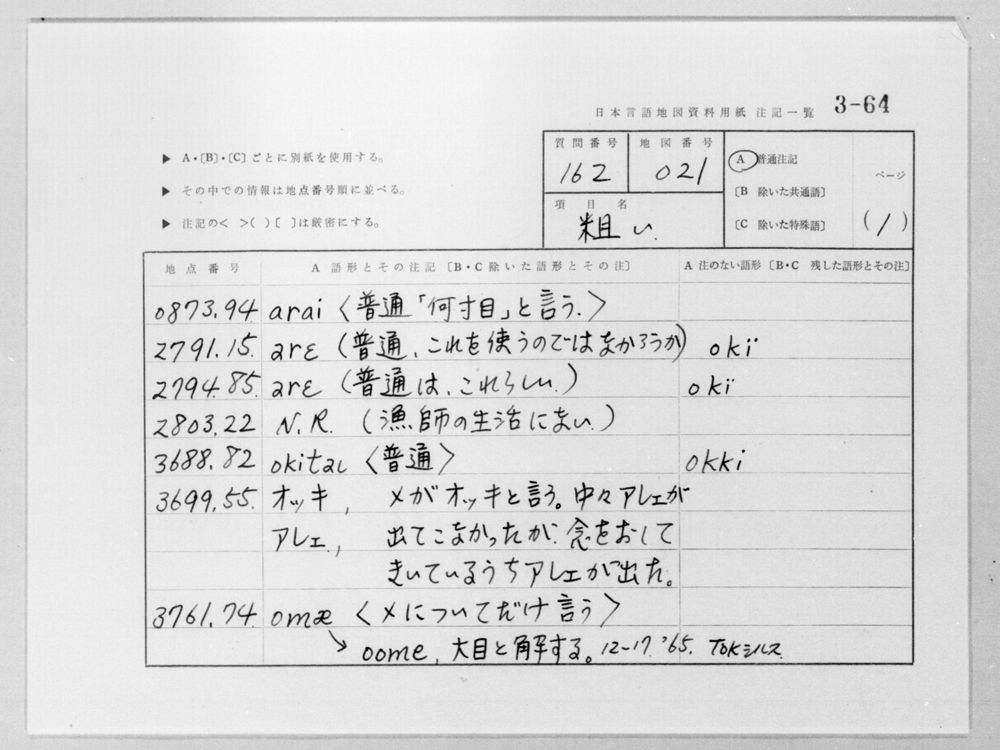 日本言語地図資料用紙 注記一覧 3-64
▶ A・〔B〕・〔C〕ごとに別紙を使用する。
▶ その中での情報は地点番号順に並べる。
▶ 注記の< >( )〔 〕は厳密にする。
質問番号 162
地図番号 021
項目名 粗い
A 普通注記
〔B 除いた共通語〕
〔C 除いた特殊語〕
ページ
(1)
地点番号 A 語形とその注記〔B・C除いた語形とその注〕 A 注のない語形〔B・C 残した語形とその注〕
0873.94 arai〈普通「何寸目」と言う.〉
2791.15. arɛ (普通、これを使うのではなかろうか) okï
2794.85. arɛ (普通は、これらしい.) okï
2803.22 N.R. (漁師の生活にない.)
3688.82 okitaɩ〈普通〉 okki
3699.55. オッキ, メがオッキと言う。中々アレェが
アレェ., 出てこなかったが、念をおして
きいているうちアレェが出た。
3761.74 omæ〈メについてだけ言う〉
↘ oome, 大目と解する。12-17.'65. TOKシルス